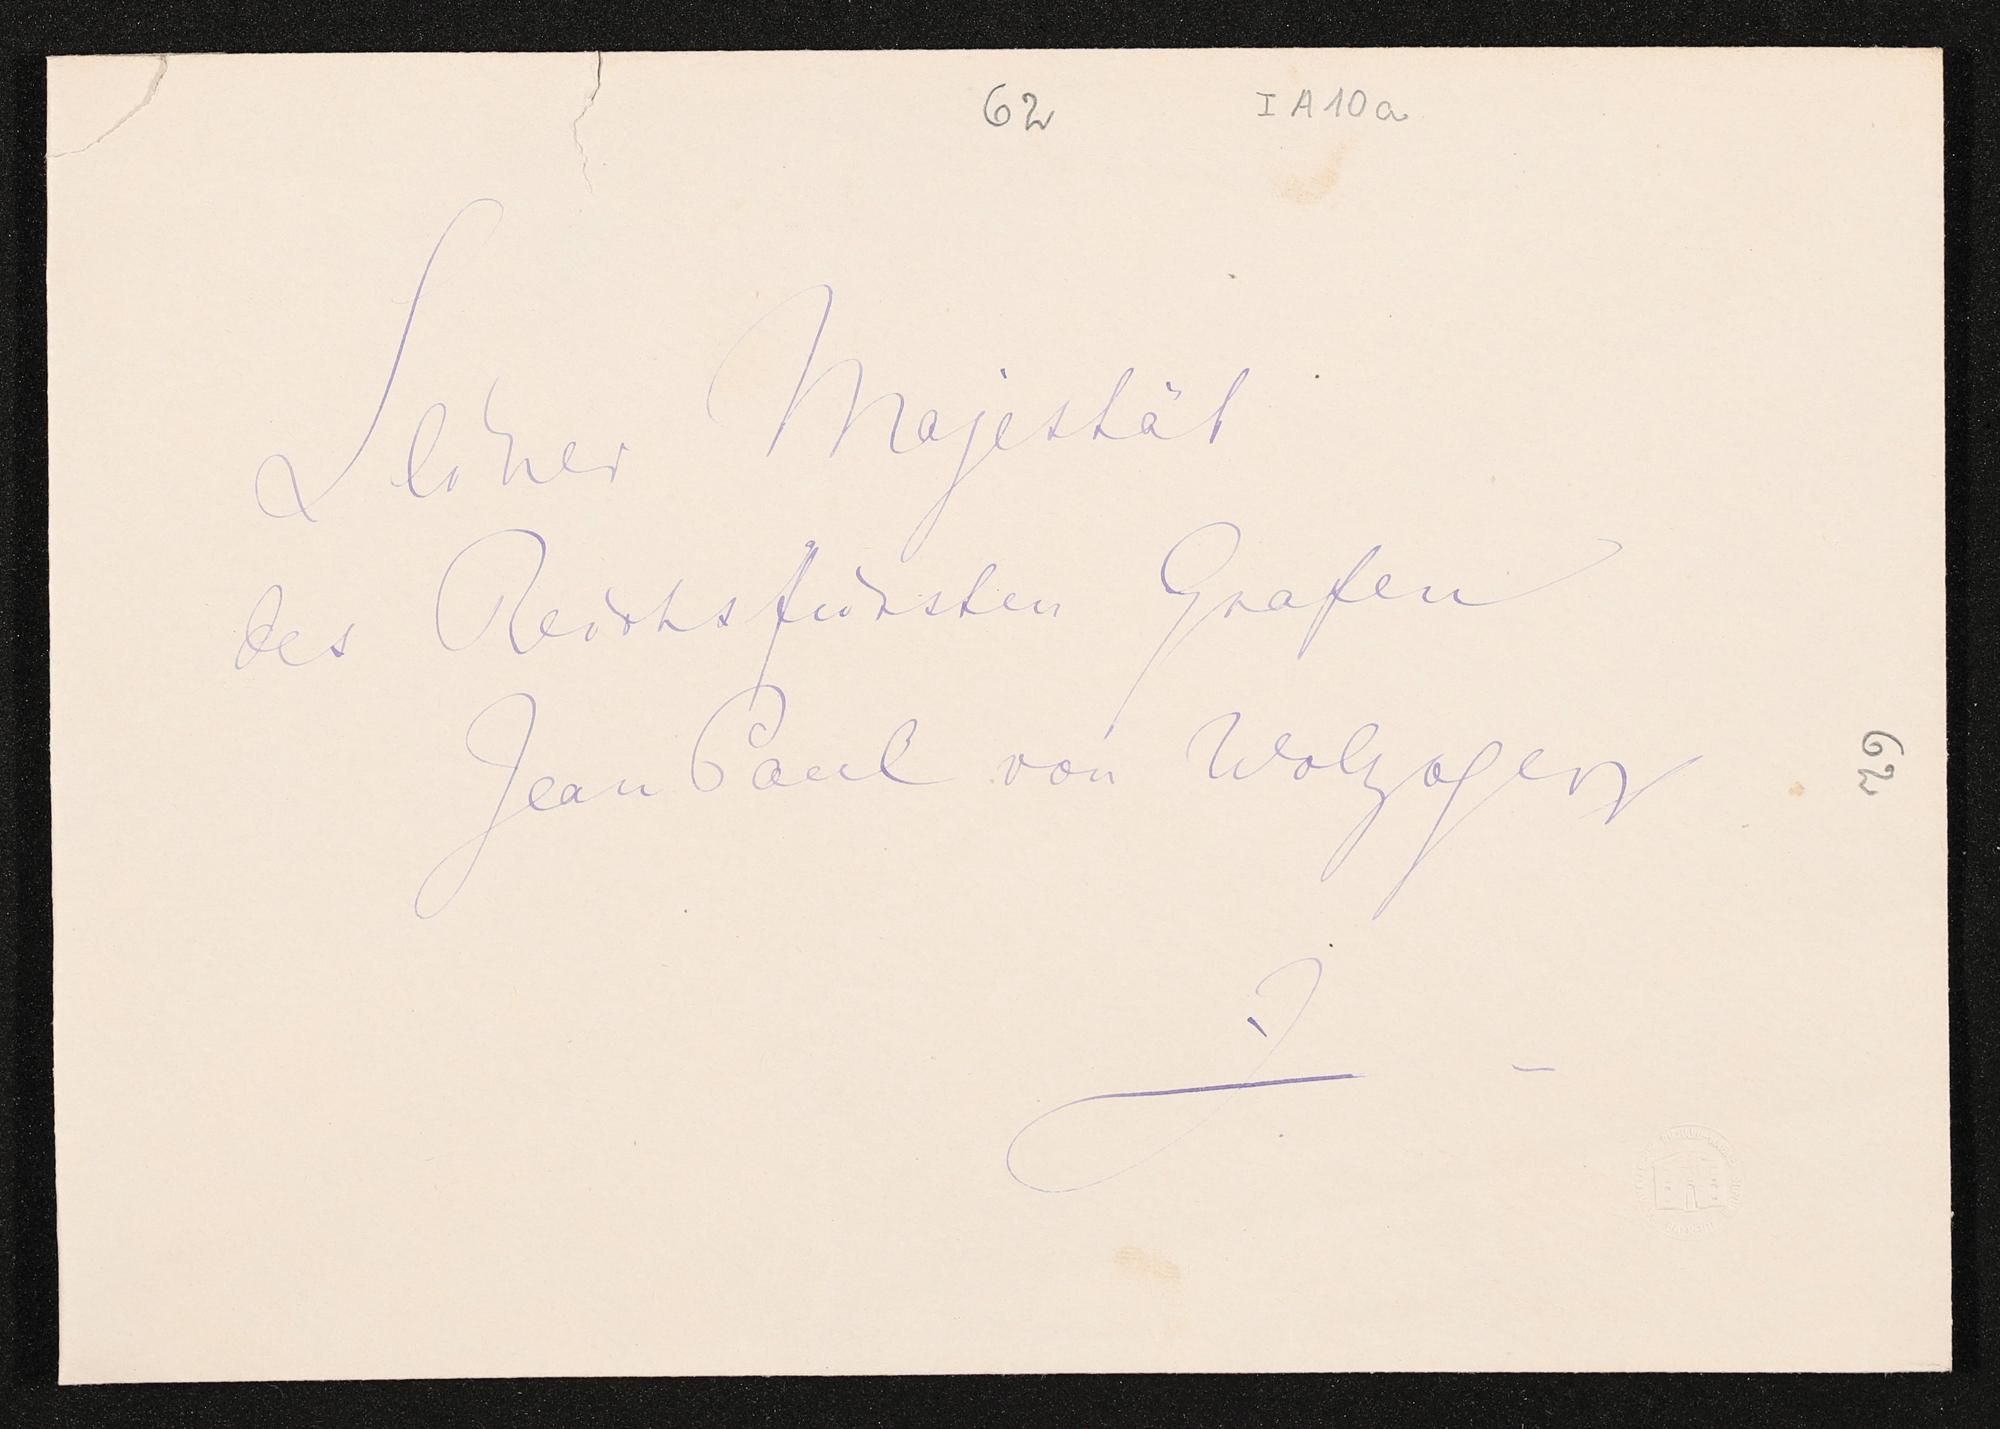 62 I A 10 a
Seiner Majestät
des Reichsfürsten Grafen
Jean Paul von Wolzogen
62